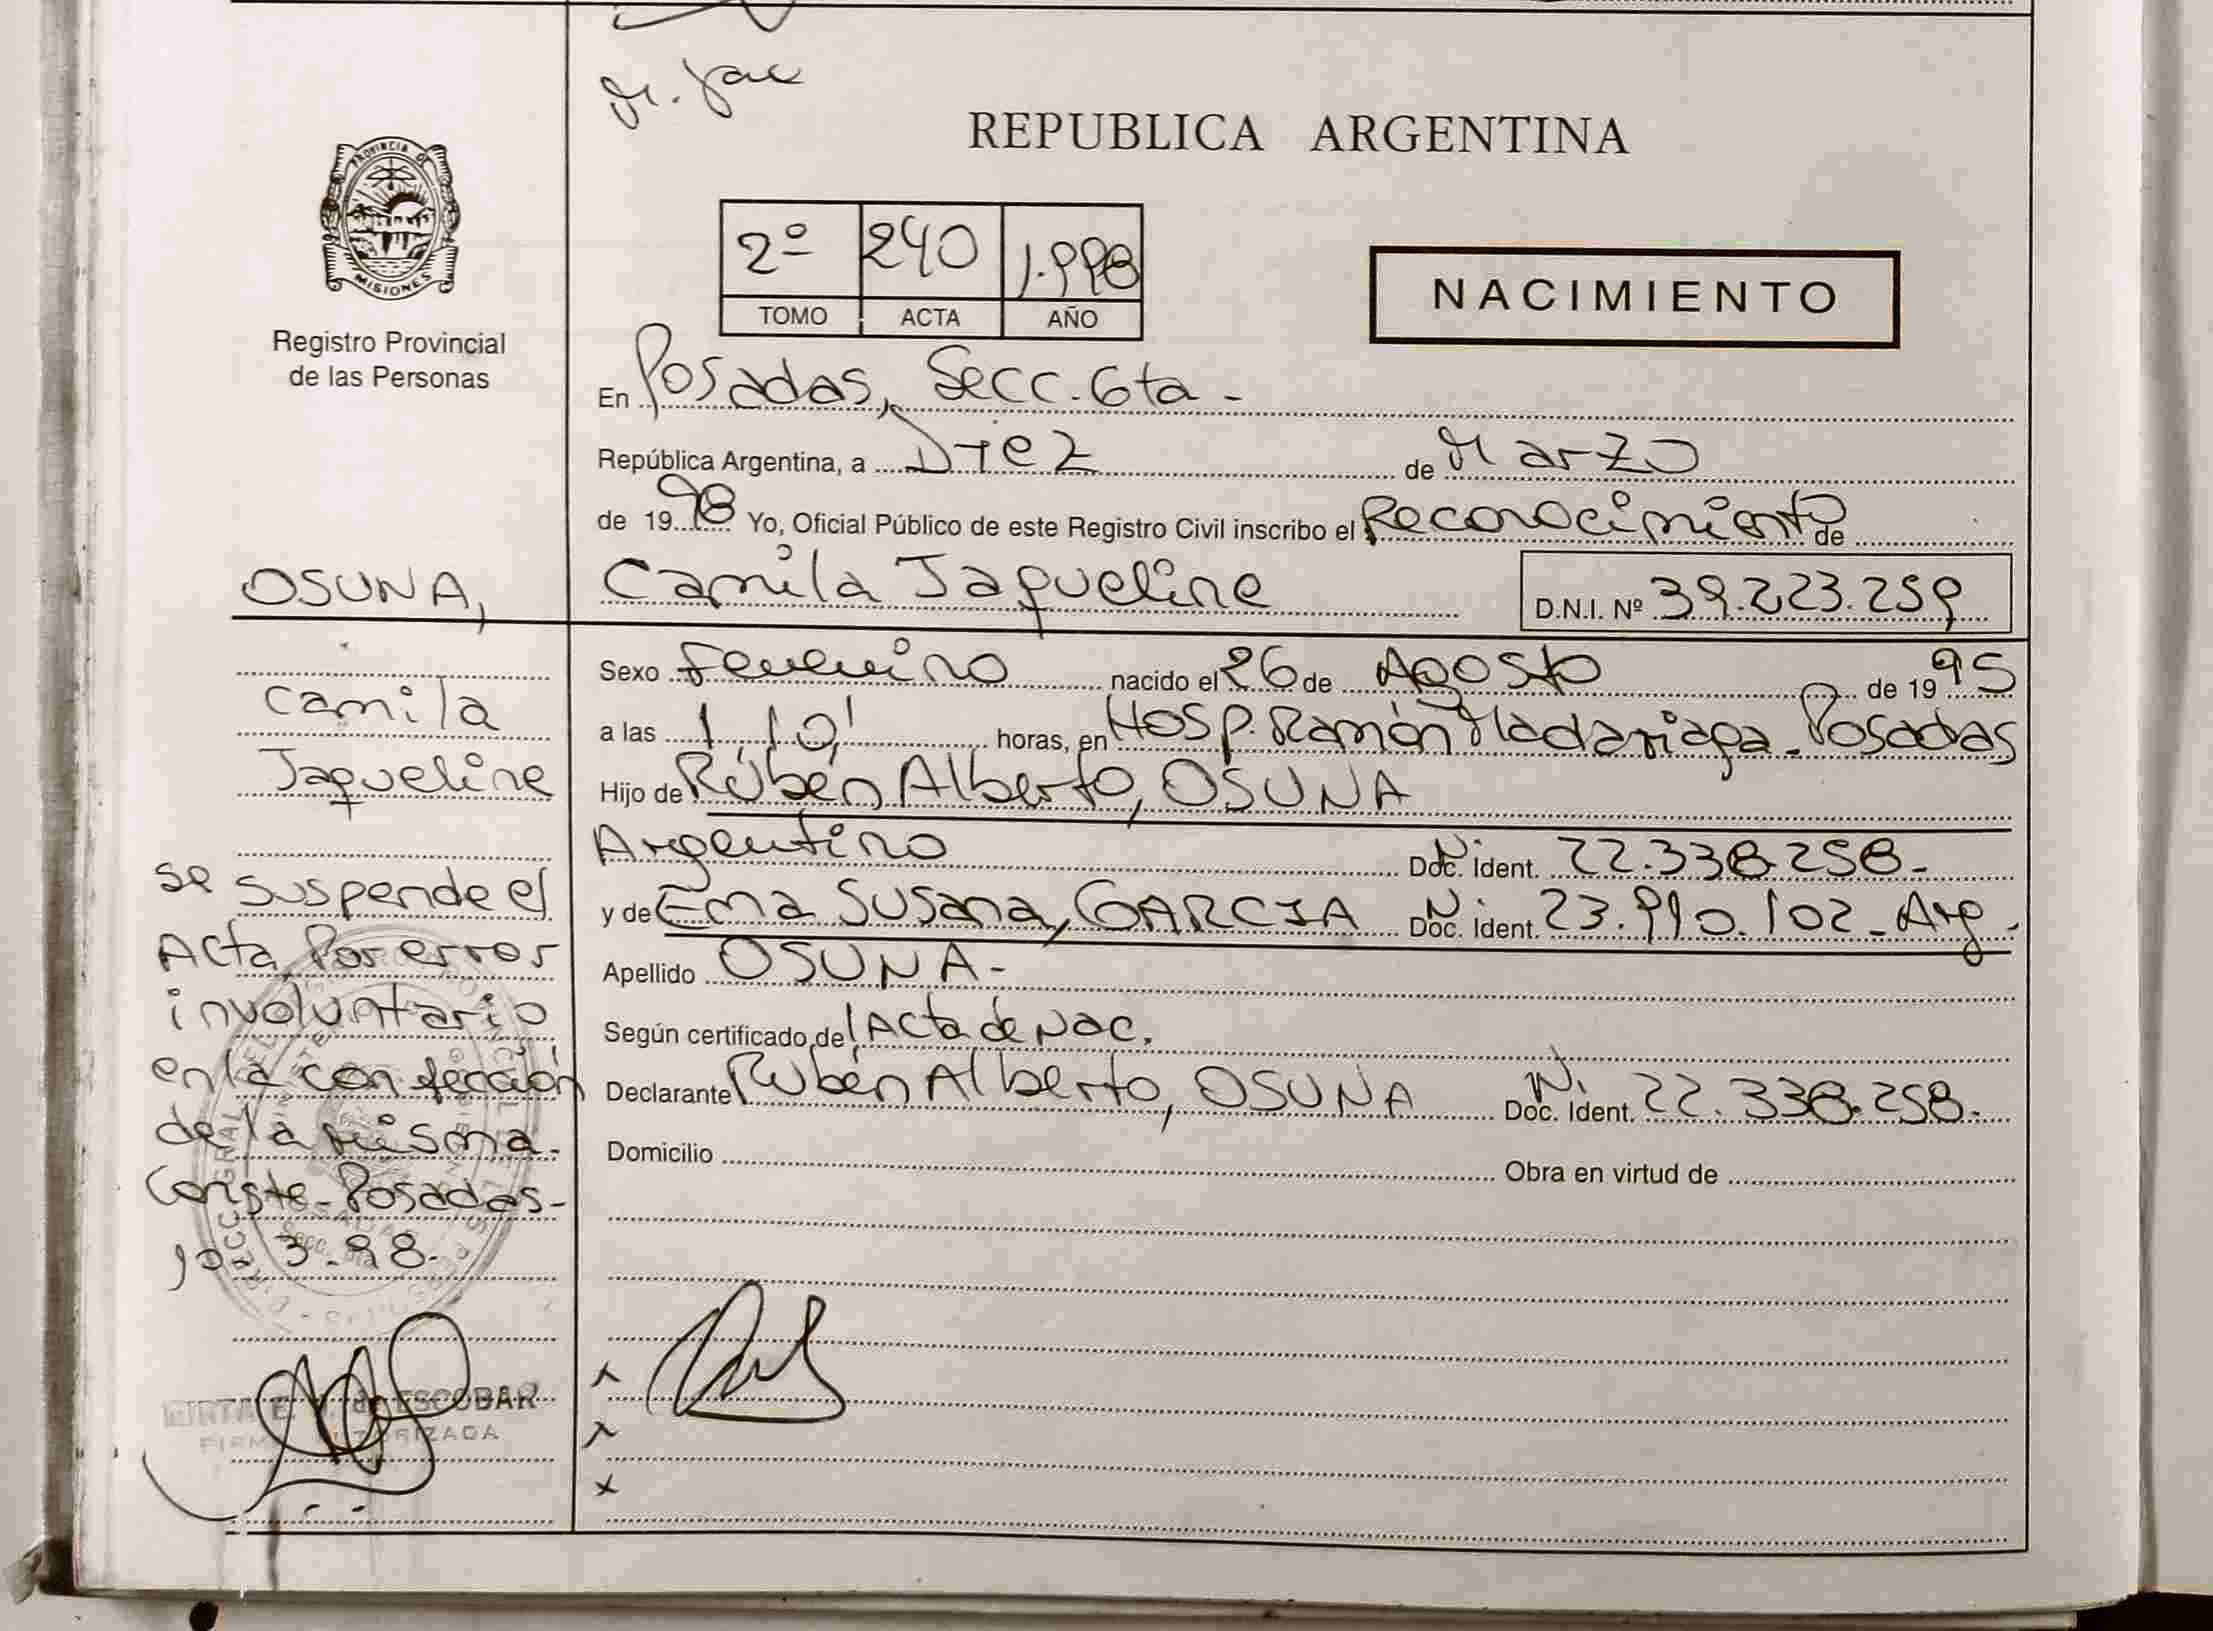 REPUBLICA ARGENTINA
PROVINCIA DE MISIONES
Registro Provincial
de las Personas
2º 240 1.998
TOMO ACTA AÑO
NACIMIENTO
En Posadas, Secc. 6ta -
República Argentina, a Diez de Marzo
de 1998 Yo, Oficial Público de este Registro Civil inscribo el Reconocimiento de
Camila Jaqueline D.N.I. Nº 39.223.259
Sexo femenino nacido el 26 de Agosto de 1995
a las 1,10' horas, en Hosp. Ramón Madariaga - Posadas
Hijo de Rúbén Alberto, OSUNA
Argentino Doc. Ident. 22.338.258-
y de Ema Susana, GARCIA Doc. Ident. 23.910.102 - Arg.
Apellido OSUNA -
Según certificado de Acta de Nac.
Declarante Rubén Alberto, OSUNA Doc. Ident. 22.338.258-
Domicilio Obra en virtud de
OSUNA,
Camila
Jaqueline
se suspende el
Acta Por error
involuntario
en la confección
de la misma -
Conste - Posadas -
10. 3. 98-
ESCOBAR